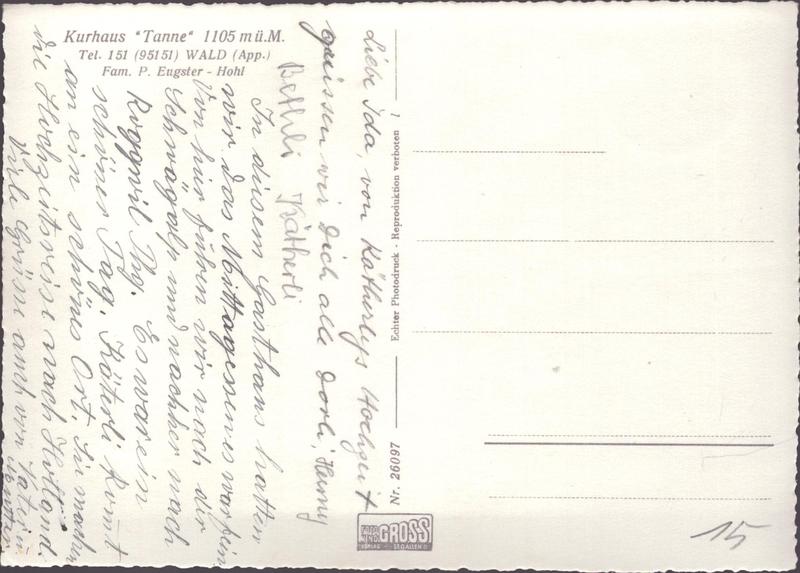 Kurhaus "Tanne" 1105 m ü. M.
Tel. 151 (95151) WALD (App.)
Fam. P. Eugster - Hohl
Liebe Ida, von Kätherlys Hochzeit
grüssen wir Dich alle Dorli, Henny
Bethli Kätherli
In diesem Gasthaus hatten
wir das Mittagessen es war fein
Von hier fuhren wir nach der
Schwägalp und nachher nach
Roggwil Thg. Es war ein
schöner Tag. Käterli kommt
an ein schönes Ort. Sie machen
die Hochzeitsreise nach Holland.
Viele Grüsse auch von Vater u.
Mutter
Nr. 26097
Echter Photodruck - Reproduktion verboten
FOTO
UND
GROSS
VERLAG ST. GALLEN
15